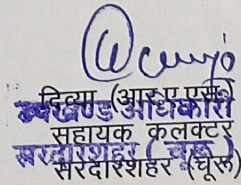 दिव्या (आर.ए.एस.)
उपखण्ड अधिकारी
सहायक कलक्टर
सरदारशहर (चूरू)
सरदारशहर (चूरू)